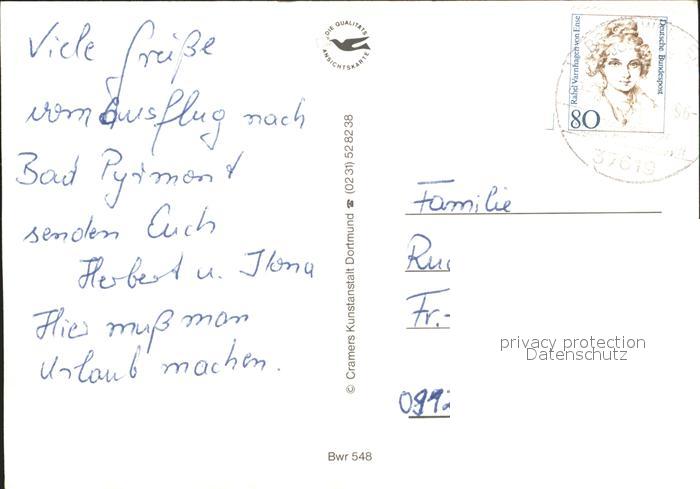 Viele Grüße
vom Ausflug nach
Bad Pyrmont
senden Euch
Herbert u. Ilona
Hier muß man
Urlaub machen.
DIE QUALITÄTS
ANSICHTSKARTE
© Cramers Kunstanstalt Dortmund ☎ (0231) 528238
Bwr 548
Rahel Varnhagen von Ense
Deutsche Bundespost
80
37619
Familie
Fr.-
privacy protection
Datenschutz